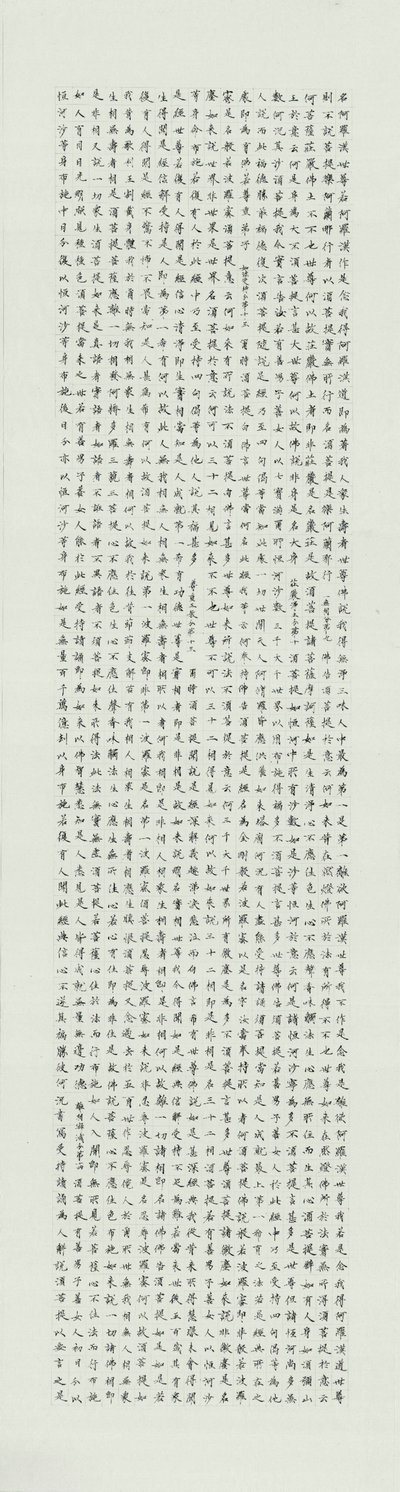 名阿羅漢世尊若阿羅漢作是念我得阿羅漢道即為著我人眾生壽者世尊佛說我得無諍三昧人中最為第一是第一離欲阿羅漢世尊我不作是念我是離欲阿羅漢世尊我若作是念我得阿羅漢道世尊
則不說須菩提樂阿蘭那行者以須菩提實無所行而名須菩提是樂阿蘭那行 一相無相分第九 佛告須菩提於意云何如來昔在然燈佛所於法有所得不不也世尊如來在然燈佛所於法實無所得須菩提於意云
何菩薩莊嚴佛土不不也世尊何以故莊嚴佛土者即非莊嚴是名莊嚴是故須菩提諸菩薩摩訶薩應如是生清淨心不應住色生心不應住聲香味觸法生心應無所住而生其心須菩提譬如有人身如須彌山
王於意云何是身為大不須菩提言甚大世尊何以故佛說非身是名大身 莊嚴淨土分第十 須菩提如恒河中所有沙數如是沙等恒河於意云何是諸恒河沙寧為多不須菩提言甚多世尊但諸恒河尚多無
數何況其沙須菩提我今實言告汝若有善男子善女人以七寶滿爾所恒河沙數三千大千世界以用布施得福多不須菩提言甚多世尊佛告須菩提若善男子善女人於此經中乃至受持四句偈等為他
人說而此福德勝前福德復次須菩提隨說是經乃至四句偈等當知此處一切世間天人阿修羅皆應供養如佛塔廟何況有人盡能受持讀誦須菩提當知是人成就最上第一希有之法若是經典所在之
處即為有佛若尊重弟子 如法受持分第十三 爾時須菩提白佛言世尊當何名此經我等云何奉持佛告須菩提是經名為金剛般若波羅蜜以是名字汝當奉持所以者何須菩提佛說般若波羅蜜即非般若波羅
蜜是名般若波羅蜜須菩提於意云何如來有所說法不須菩提白佛言世尊如來無所說法須菩提於意云何三千大千世界所有微塵是為多不須菩提言甚多世尊須菩提諸微塵如來說非微塵是名
微塵如來說世界非世界是名世界須菩提於意云何可以三十二相見如來不不也世尊不可以三十二相得見如來何以故如來說三十二相即是非相是名三十二相須菩提若有善男子善女人以恒河沙
等身命布施若復有人於此經中乃至受持四句偈等為他人說其福甚多 尊重正教分第十二 爾時須菩提聞說是經深解義趣涕淚悲泣而白佛言希有世尊佛說如是甚深經典我從昔來所得慧眼未曾得聞
是經世尊若復有人得聞是經信心清淨即生實相當知是人成就第一希有功德世尊是實相者即是非相是故如來說名實相世尊我今得聞如是經典信解受持不足為難若當來世後五百歲其有眾
生得聞是經信解受持是人即為第一希有何以故此人無我相無人相無眾生相無壽者相所以者何我相即是非相人相眾生相壽者相即是非相何以故離一切諸相即名諸佛佛告須菩提如是如是若
復有人得聞是經不驚不怖不畏當知是人甚為希有何以故須菩提如來說第一波羅蜜即非第一波羅蜜是名第一波羅蜜須菩提忍辱波羅蜜如來說非忍辱波羅蜜是名忍辱波羅蜜何以故須菩提如
我昔為歌利王割截身體我於爾時無我相無人相無眾生相無壽者相何以故我於往昔節節支解時若有我相人相眾生相壽者相應生瞋恨須菩提又念過去於五百世作忍辱仙人於爾所世無我相無人相無眾
生相無壽者相是故須菩提菩薩應離一切相發阿耨多羅三藐三菩提心不應住色生心不應住聲香味觸法生心應生無所住心若心有住即為非住是故佛說菩薩心不應住色布施如來說一切諸相即
是非相又說一切眾生須菩提如來是真語者實語者如語者不誑語者不異語者須菩提如來所得法此法無實無虛須菩提若菩薩心住於法而行布施如人入闇即無所見若菩薩心不住法而行布施
如人有目日光明照見種種色須菩提當來之世若有善男子善女人能於此經受持讀誦即為如來以佛智慧悉知是人悉見是人皆得成就無量無邊功德 離相寂滅分第十四 須菩提若有善男子善女人初日分以
恒河沙等身布施中日分復以恒河沙等身布施後日分亦以恒河沙等身布施如是無量百千萬億劫以身布施若復有人聞此經典信心不逆其福勝彼何況書寫受持讀誦為人解說須菩提以要言之是